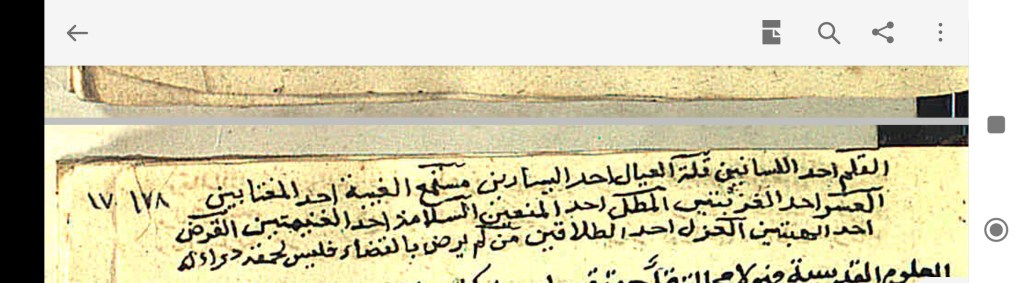 القلم احد اللسانين قلة العيال احد اليسارين مستمع الغيبة احد المغتابين
١٧٨ ١٧
العسر احد المطل احد المنعين السلامة احد الغنيمتين القرض
احد الهبتين العزل احد الطلاقين من لم يرض بالقضاء فليس لحمقه دواء
العلوم القدسية